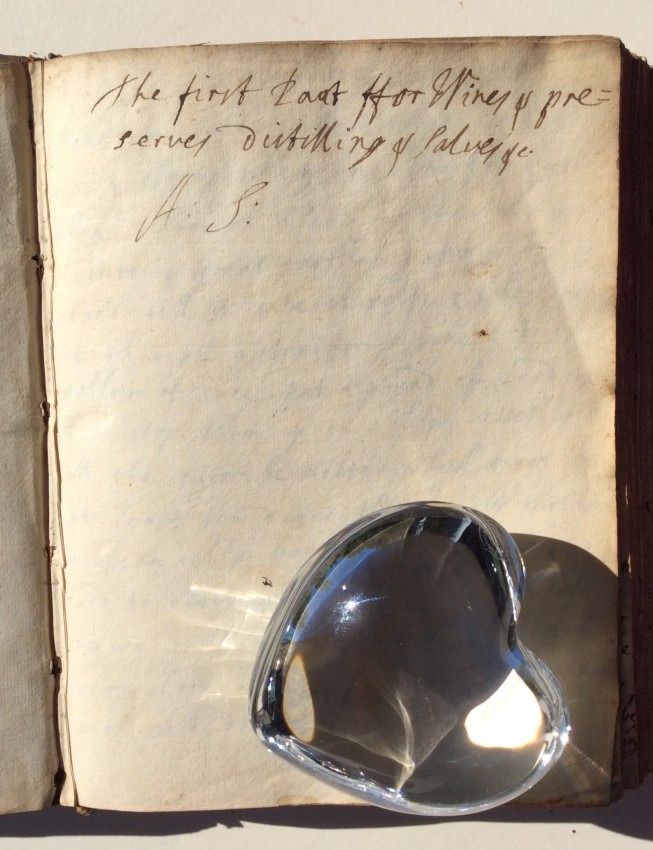 The first Part ffor Wines & pre=
serves distilling & salves &c
A: S: